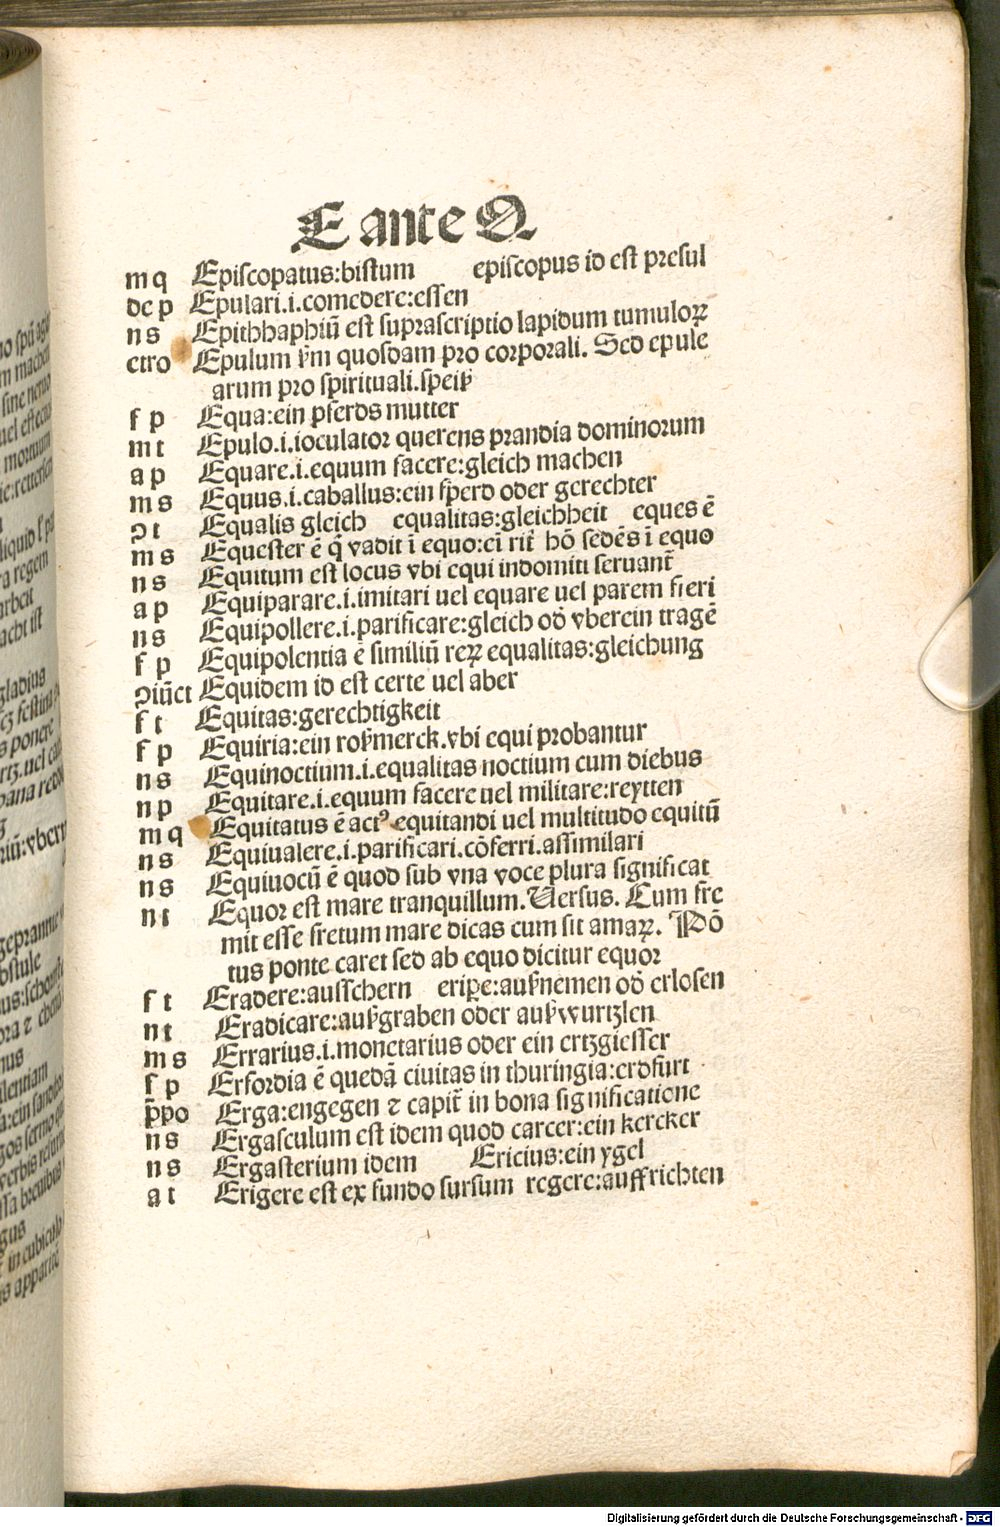 E ante Q
m q Episcopatus:bistum episcopus id est presul
de p Epulari.i.comedere:essen
n s Epithhaphiū est suprascriptio lapidum tumuloꝝ
etro Epulum ẜm quosdam pro corporali. Sed epule
arum pro spirituali.speiß
f p Equa:ein pferds mutter
m t Epulo.i.ioculator querens prandia dominorum
a p Equare.i.equum facere:gleich machen
m s Equus.i.caballus:ein pferd oder gerechter
ꝯ t Equalis gleich equalitas:gleichheit eques ē
m s Equester ē q̄ vadit ī equo:eī rit̄ hō sedēs ī equo
n s Equitum est locus vbi equi indomiti seruant̄
a p Equiparare.i.imitari uel equare uel parem fieri
n s Equipollere.i.parificare:gleich od̄ vberein tragē
f p Equipolentia ē similiū reꝝ equalitas:gleichung
ꝯiūct Equidem id est certe uel aber
f t Equitas:gerechtigkeit
f p Equiria:ein roßmerck.vbi equi probantur
n s Equinoctium.i.equalitas noctium cum diebus
n p Equitare.i.equum facere uel militare:reytten
m q Equitatus ē actꝰ equitandi uel multitudo equitū
n s Equiualere.i.parificari.cōferri.assimilari
n s Equiuocū ē quod sub vna voce plura significat
n t Equor est mare tranquillum.Uersus. Cum fre
mit esse fretum mare dicas cum sit amaꝝ. Pō
tus ponte caret sed ab equo dicitur equor
f t Eradere:ausschern eriꝑe:außnemen od̄ erlosen
n t Eradicare:außgraben oder außwurtzlen
m s Errarius.i.monetarius oder ein ertzgiesser
f p Erfordia ē quedā ciuitas in thuringia:erdfurt
p̄po Erga:engegen ⁊ capit̄ in bona significatione
n s Ergasculum est idem quod carcer:ein kercker
n s Ergasterium idem Ericius:ein ygel
a t Erigere est ex fundo sursum regere:auffrichten
Digitalisierung gefördert durch die Deutsche Forschungsgemeinschaft - DFG